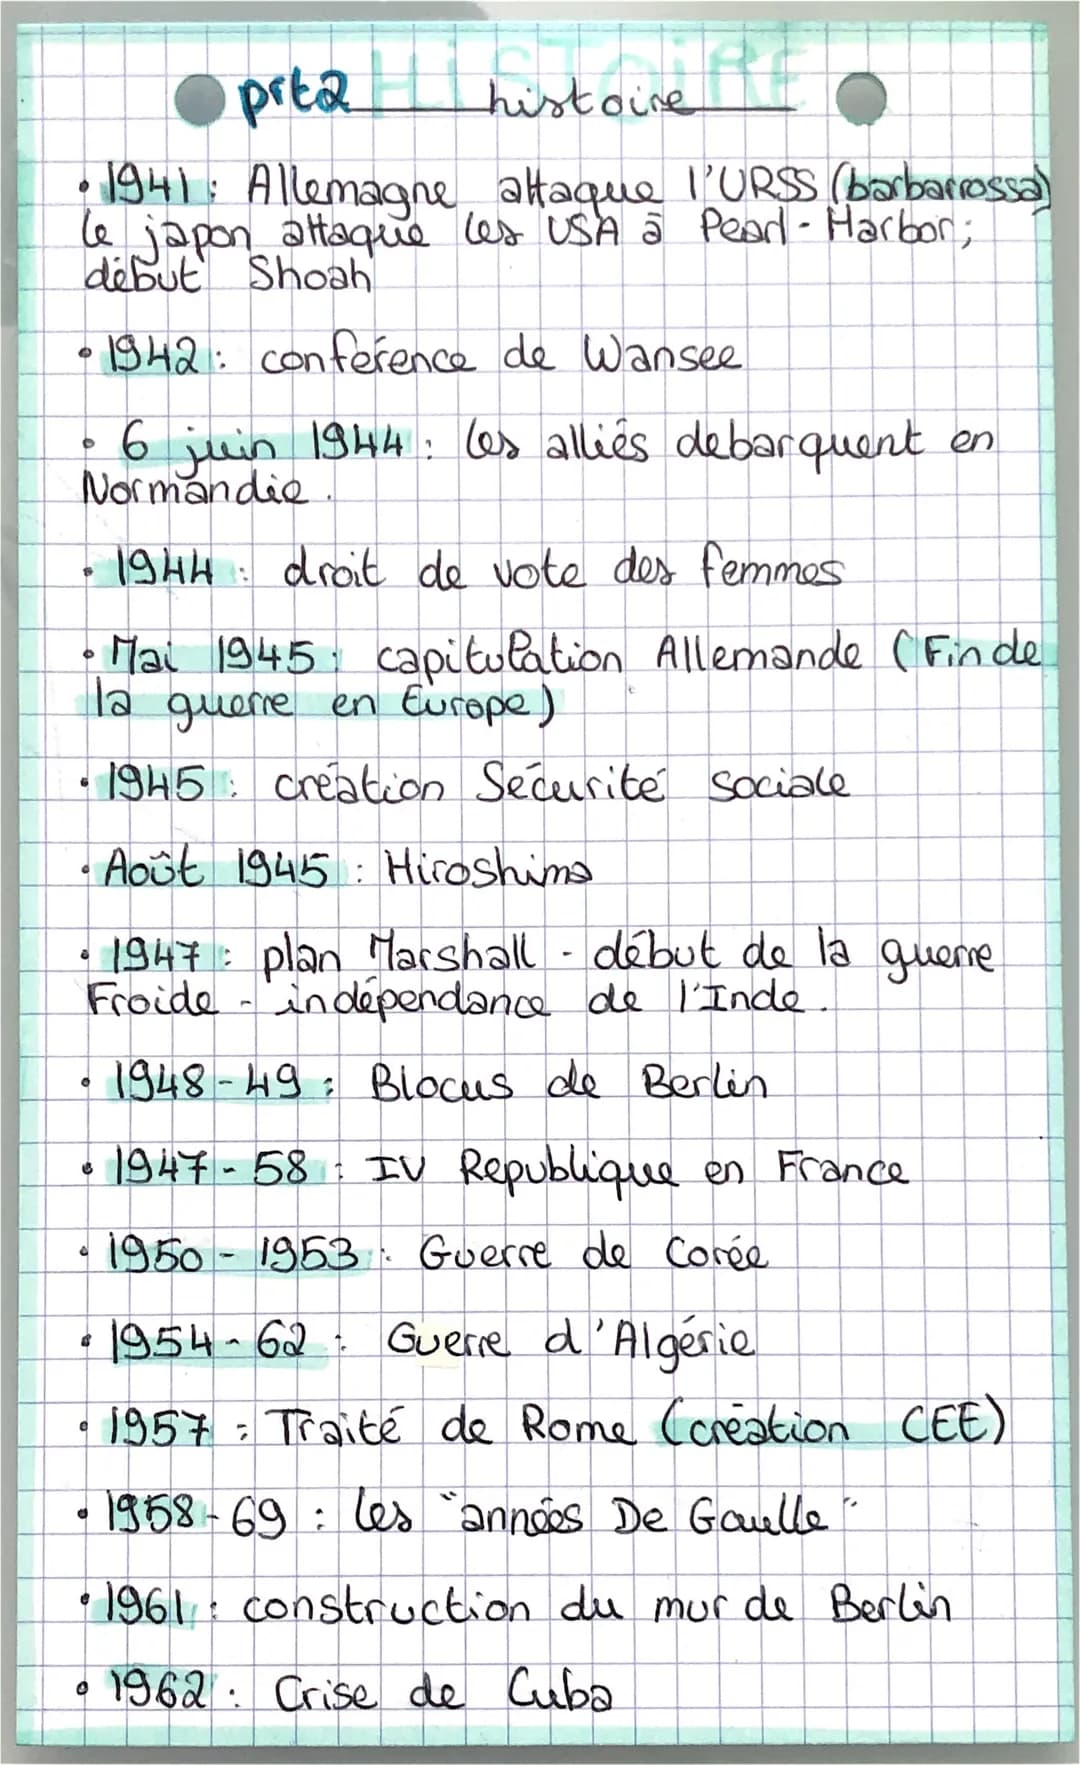 HISTOIRE
prt2 histoire
• 1941 : Allemagne attaque l'URSS (barbarrossa)
le japon attaque les USA à Pearl-Harbor ;
début Shoah
• 1942 : conférence de Wansee
• 6 juin 1944 : les alliés debarquent en
Normandie.
• 1944 : droit de vote des femmes
• Mai 1945 : capitulation Allemande (Fin de
la guerre en Europe)
• 1945 : création Sécurité sociale
• Août 1945 : Hiroshima
• 1947 : plan Marshall - début de la guerre
Froide - indépendance de l'Inde.
• 1948-49 : Blocus de Berlin
• 1947-58 : IV Republique en France
• 1950-1953 : Guerre de Corée
• 1954-62 : Guerre d'Algérie
• 1957 : Traité de Rome (création CEE)
• 1958-69 : les "années De Gaulle"
• 1961 : construction du mur de Berlin
• 1962 : Crise de Cuba